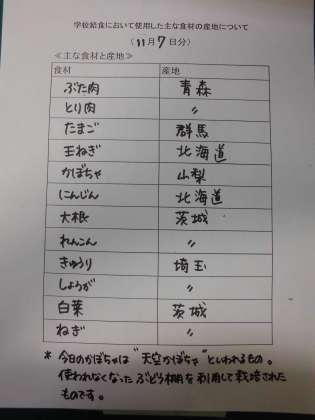 学校給食において使用した主な食材の産地について
(11月7日分)
≪主な食材と産地≫
食材 産地
ぶた肉 青森
とり肉 〃
たまご 群馬
玉ねぎ 北海道
かぼちゃ 山梨
にんじん 北海道
大根 茨城
れんこん 〃
きゅうり 埼玉
しょうが 〃
白菜 茨城
ねぎ 〃
* 今日のかぼちゃは "天空かぼちゃ" といわれるもの。
使われなくなったぶどう棚を利用して栽培された
ものです。